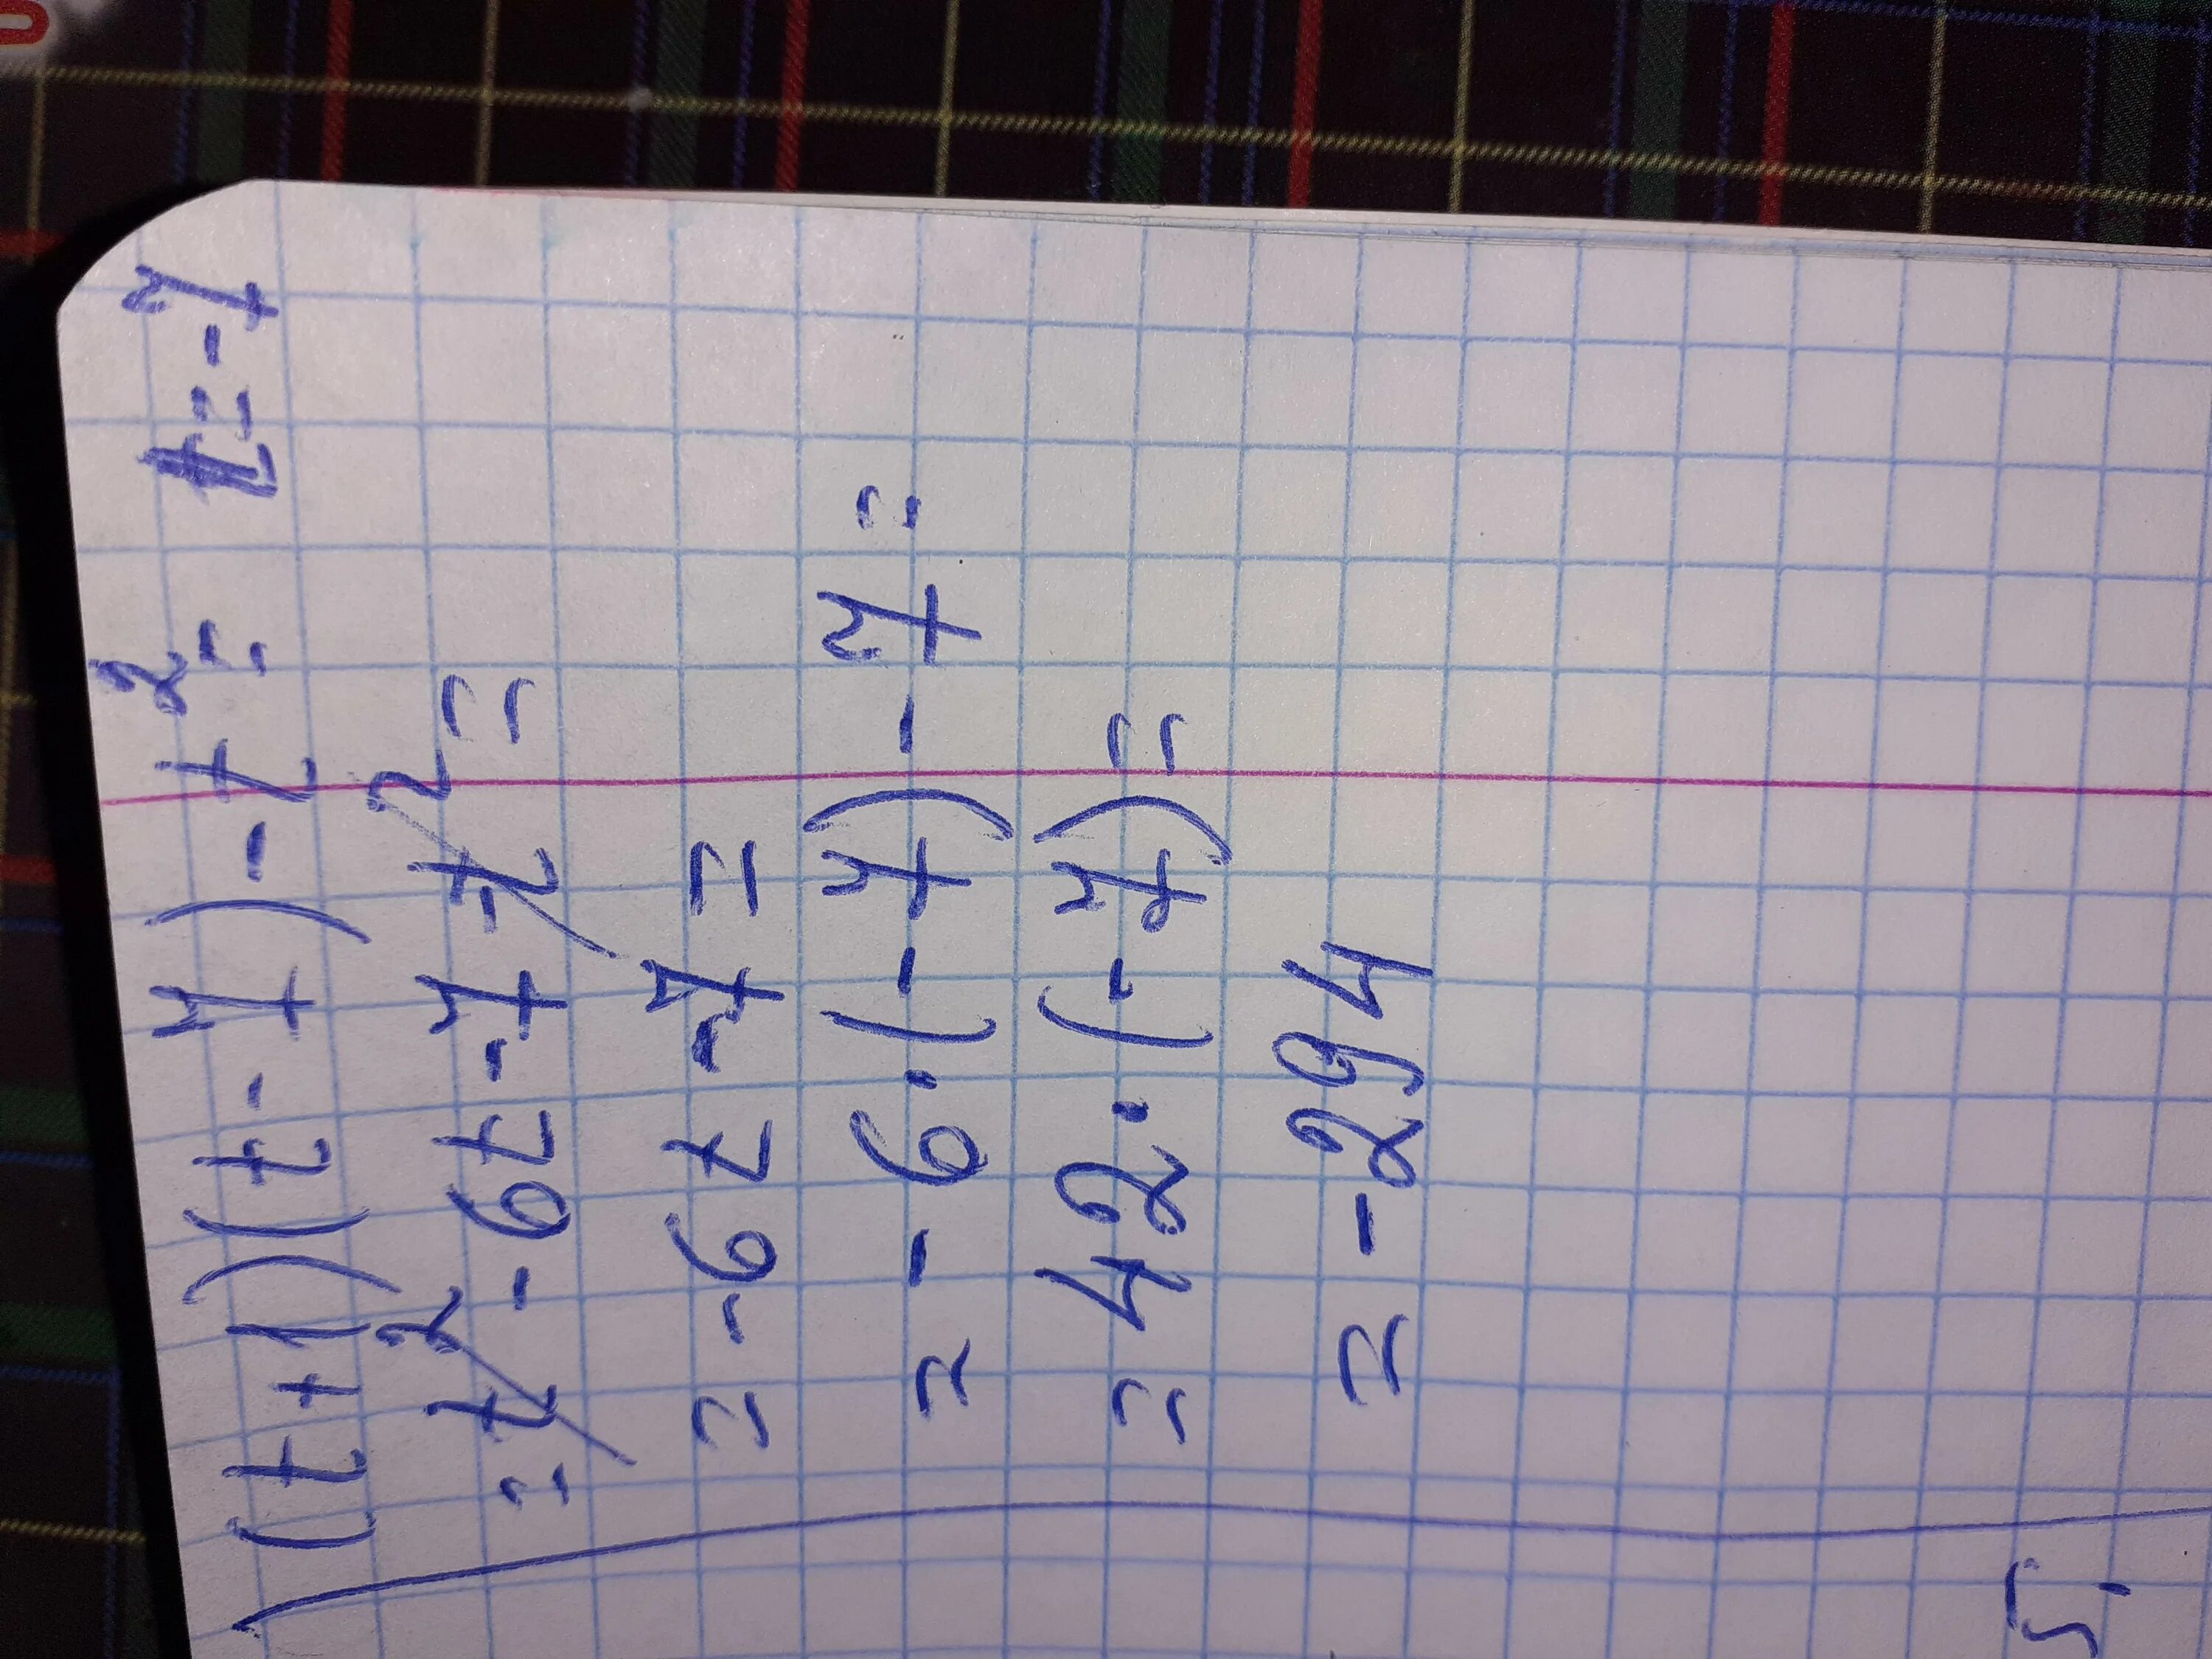 (t+1)(t-7)-t²= t=-7
=t²-6t-7-t²=
=-6t-7=
=-6·(-7)-7=
=42·(-7)=
=-294
5.